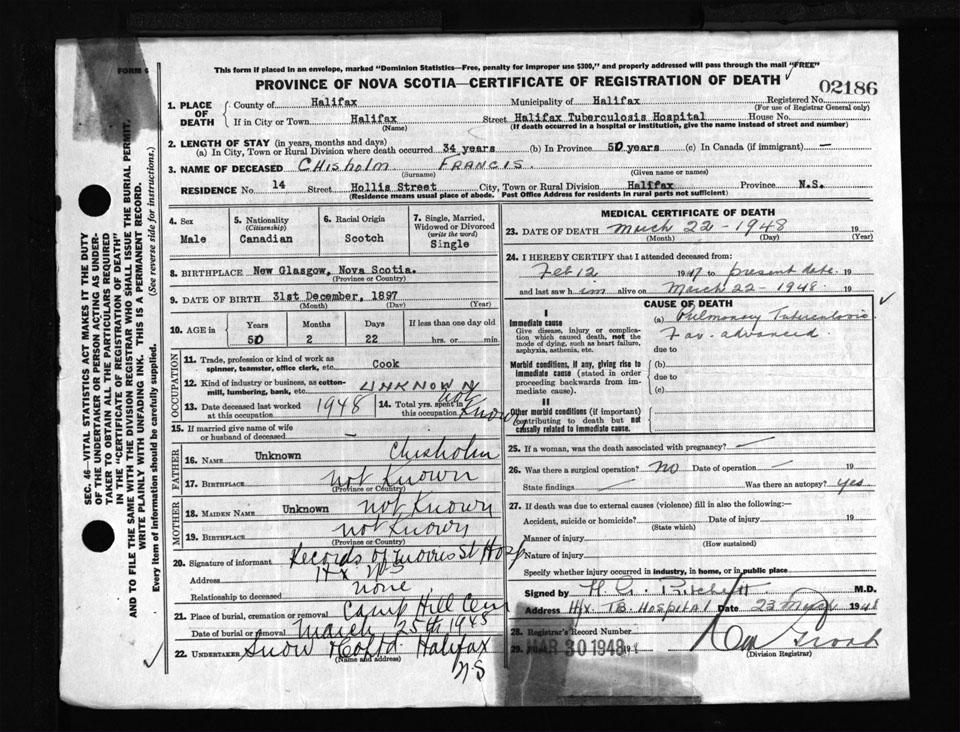 FORM 6
This form if placed in an envelope, marked "Dominion Statistics—Free, penalty for improper use $300," and properly addressed will pass through the mail "FREE"
PROVINCE OF NOVA SCOTIA—CERTIFICATE OF REGISTRATION OF DEATH
02186
1. PLACE OF DEATH
County of Halifax Municipality of Halifax Registered No.
(For use of Registrar General only)
If in City or Town Halifax Street Halifax Tuberculosis Hospital House No.
(Name) (If death occurred in a hospital or institution, give the name instead of street and number)
2. LENGTH OF STAY (in years, months and days)
(a) In City, Town or Rural Division where death occurred 34 years (b) In Province 50 years (c) In Canada (if immigrant) —
3. NAME OF DECEASED Chisholm Francis.
(Surname) (Given name or names)
RESIDENCE No. 14 Street Hollis Street City, Town or Rural Division Halifax Province N.S.
(Residence means usual place of abode. Post Office Address for residents in rural parts not sufficient)
4. Sex
Male
5. Nationality
(Citizenship)
Canadian
6. Racial Origin
Scotch
7. Single, Married, Widowed or Divorced
(write the word)
Single
8. BIRTHPLACE New Glasgow, Nova Scotia.
(Province or Country)
9. DATE OF BIRTH 31st December, 1897
(Month) (Day) (Year)
10. AGE in
Years Months Days If less than one day old
50 2 22 hrs. or min.
OCCUPATION
11. Trade, profession or kind of work as spinner, teamster, office clerk, etc. Cook
12. Kind of industry or business, as cotton-mill, lumbering, bank, etc. UNKNOWN
13. Date deceased last worked at this occupation 1948
14. Total yrs. spent in this occupation not Known
15. If married give name of wife or husband of deceased —
FATHER
16. NAME Unknown Chisholm
17. BIRTHPLACE not Known
(Province or Country)
MOTHER
18. MAIDEN NAME Unknown not Known
19. BIRTHPLACE not Known
(Province or Country)
20. Signature of informant Records of Morris St Hosp
Address Hx NS
Relationship to deceased none
21. Place of burial, cremation or removal Camp Hill Cem
Date of burial or removal March 25th 1948
22. UNDERTAKER Snow & Co Ltd. Halifax
(Name and address)
N.S
MEDICAL CERTIFICATE OF DEATH
23. DATE OF DEATH March 22 - 1948 19
(Month) (Day) (Year)
24. I HEREBY CERTIFY that I attended deceased from:
Feb 12 1947 to present date 19
and last saw him alive on March 22 - 1948 19
CAUSE OF DEATH
I
Immediate cause
Give disease, injury or complication which caused death, not the mode of dying, such as heart failure, asphyxia, asthenia, etc.
(a) Pulmonary Tuberculosis
Far advanced
due to
Morbid conditions, if any, giving rise to immediate cause (stated in order proceeding backwards from immediate cause).
(b)
due to
(c)
II
Other morbid conditions (if important) contributing to death but not causally related to immediate cause.
25. If a woman, was the death associated with pregnancy? —
26. Was there a surgical operation? No Date of operation — 19
State findings — Was there an autopsy? yes
27. If death was due to external causes (violence) fill in also the following:—
Accident, suicide or homicide? Date of injury 19
(State which)
Manner of injury
(How sustained)
Nature of injury
Specify whether injury occurred in industry, in home, or in public place
Signed by H. G. Pritchett M.D.
Address Hfx. TB. Hospital Date 23 March 1948
28. Registrar's Record Number
29. MAR 30 1948
(Division Registrar)
SEC. 46—VITAL STATISTICS ACT MAKES IT THE DUTY
OF THE UNDERTAKER OR PERSON ACTING AS UNDER-
TAKER TO OBTAIN ALL THE PARTICULARS REQUIRED
IN THE "CERTIFICATE OF REGISTRATION OF DEATH"
AND TO FILE THE SAME WITH THE DIVISION REGISTRAR WHO SHALL ISSUE THE BURIAL PERMIT.
WRITE PLAINLY WITH UNFADING INK. THIS IS A PERMANENT RECORD.
Every item of information should be carefully supplied. (See reverse side for instructions.)